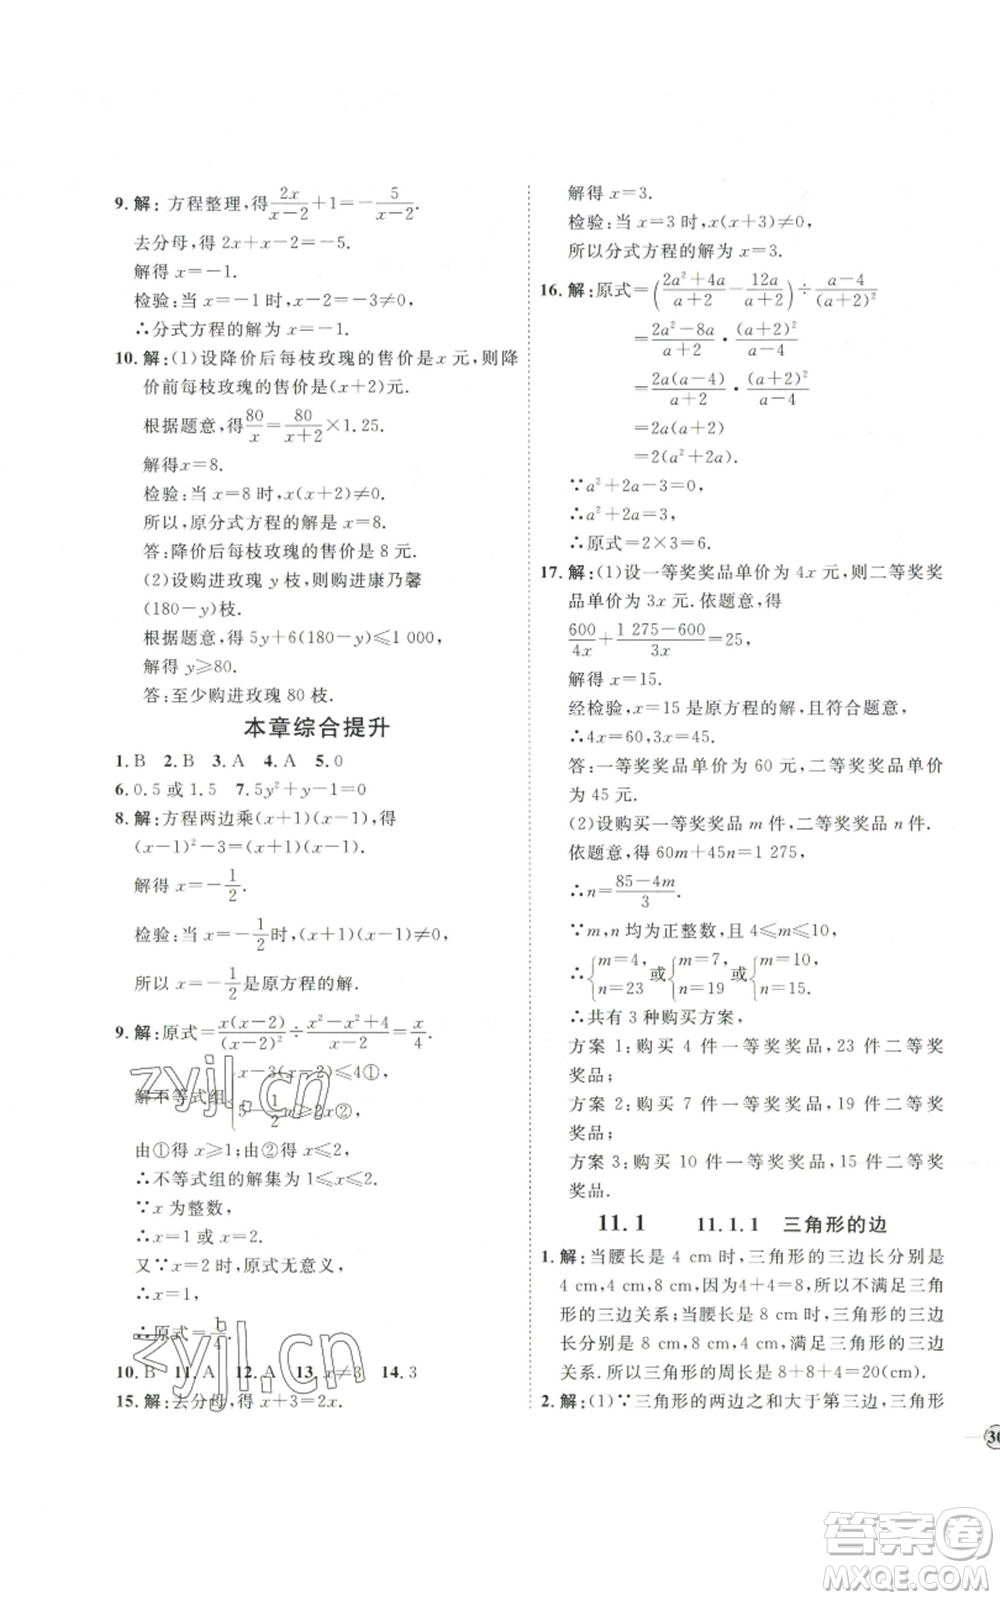 9. 解: 方程整理,得2x/(x-2)+1=-5/(x-2).
去分母,得 2x+x-2=-5.
解得 x=-1.
检验:当 x=-1 时,x-2=-3≠0,
∴分式方程的解为 x=-1.
10. 解:(1)设降价后每枝玫瑰的售价是 x 元,则降
价前每枝玫瑰的售价是(x+2)元.
根据题意,得80/x=80/(x+2)×1.25.
解得 x=8.
检验:当 x=8 时,x(x+2)≠0.
所以,原分式方程的解是 x=8.
答:降价后每枝玫瑰的售价是 8 元.
(2)设购进玫瑰 y 枝,则购进康乃馨
(180-y)枝.
根据题意,得 5y+6(180-y)≤1 000,
解得 y≥80.
答:至少购进玫瑰 80 枝.
本章综合提升
1. B 2. B 3. A 4. A 5. 0
6. 0.5 或 1.5 7. 5y²+y-1=0
8. 解:方程两边乘(x+1)(x-1),得
(x-1)²-3=(x+1)(x-1).
解得 x=-1/2.
检验:当 x=-1/2时,(x+1)(x-1)≠0,
所以 x=-1/2是原方程的解.
9. 解:原式=x(x-2)/(x-2)²÷(x²-x²+4)/(x-2)=x/4.
解不等式组{x-3(x-2)≤4①,
5-1/2x≥2x②,
由①得 x≥1;由②得 x≤2,
∴不等式组的解集为 1≤x≤2.
∵x 为整数,
∴x=1 或 x=2.
又∵x=2 时,原式无意义,
∴x=1,
∴原式=1/4.
10. B 11. A 12. A 13. x≠3 14. 3
15. 解:去分母,得 x+3=2x.
解得 x=3.
检验:当 x=3 时,x(x+3)≠0,
所以分式方程的解为 x=3.
16. 解:原式=((2a²+4a)/(a+2)-12a/(a+2))÷(a-4)/(a+2)²
=(2a²-8a)/(a+2)·(a+2)²/(a-4)
=2a(a-4)/(a+2)·(a+2)²/(a-4)
=2a(a+2)
=2(a²+2a).
∵a²+2a-3=0,
∴a²+2a=3,
∴原式=2×3=6.
17. 解:(1)设一等奖奖品单价为 4x 元,则二等奖奖
品单价为 3x 元.依题意,得
600/4x+(1 275-600)/3x=25,
解得 x=15.
经检验,x=15 是原方程的解,且符合题意,
∴4x=60,3x=45.
答:一等奖奖品单价为 60 元,二等奖奖品单价
为 45 元.
(2)设购买一等奖奖品 m 件,二等奖奖品 n 件.
依题意,得 60m+45n=1 275,
∴n=(85-4m)/3.
∵m,n 均为正整数,且 4≤m≤10,
∴{m=4, n=23 或{m=7, n=19 或{m=10, n=15.
∴共有 3 种购买方案,
方案 1:购买 4 件一等奖奖品,23 件二等奖
奖品;
方案 2:购买 7 件一等奖奖品,19 件二等奖
奖品;
方案 3:购买 10 件一等奖奖品,15 件二等奖
奖品.
11.1 11.1.1 三角形的边
1. 解:当腰长是 4 cm 时,三角形的三边长分别是
4 cm,4 cm,8 cm,因为4+4=8,所以不满足三角
形的三边关系;当腰长是 8 cm 时,三角形的三边
长分别是 8 cm,8 cm,4 cm,满足三角形的三边
关系.所以三角形的周长是 8+8+4=20(cm).
2. 解:(1)∵三角形的两边之和大于第三边,三角形
zyjl.cn
zyjl.cn
答案卷
MXQE.COM